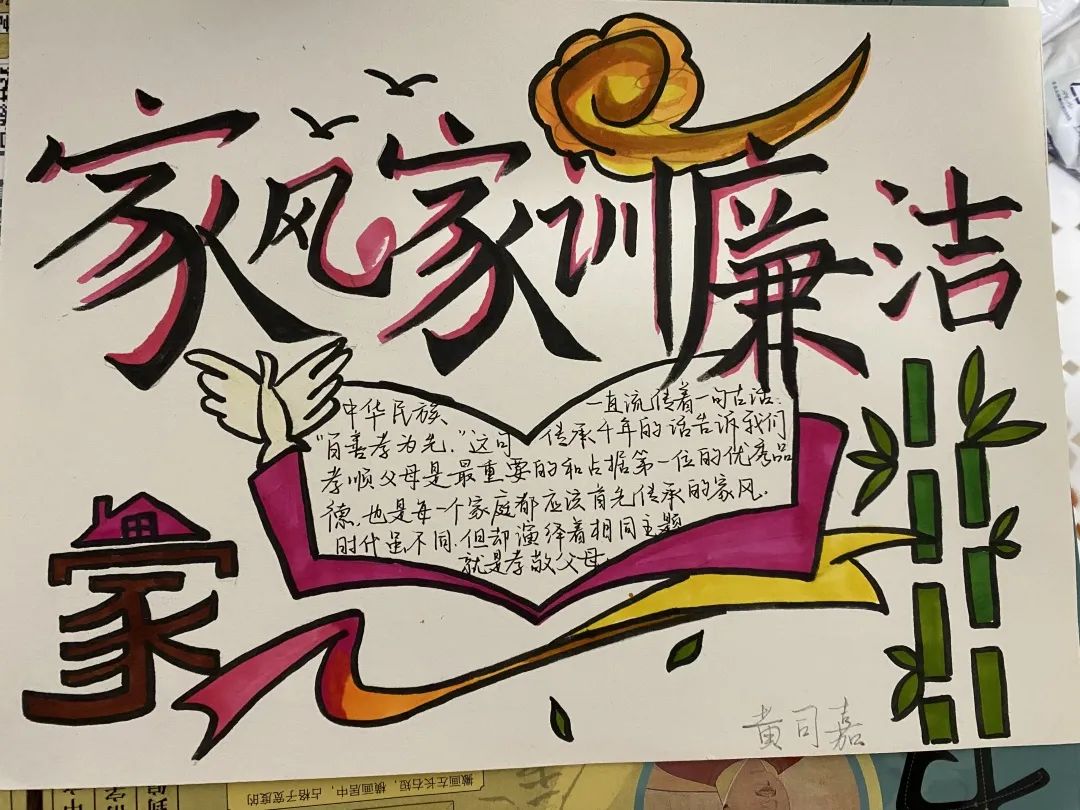 家风家训廉洁
中华民族 一直流传着一句古话:
"百善孝为先,"这句 传承千年的话告诉我们
孝顺父母是最重要的和占据第一位的优秀品
德,也是每一个家庭都应该首先传承的家风.
时代虽不同.但却演绎着相同主题
就是孝敬父母.
家
黄司嘉
撇画左长右短,横画居中,占格子宽度的